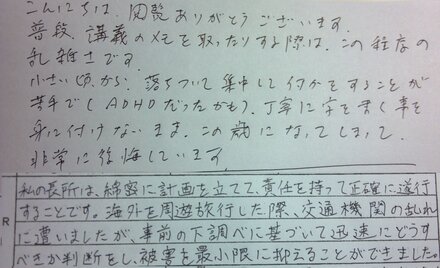 こんにちは、閲覧ありがとうございます。
普段、講義のメモを取ったりする際は、この程度の
乱雑さです。
小さい頃から、落ちついて集中して何かをすることが
苦手で(ADHDだったかも)、丁寧に字を書く事を
身に付けないまま、この歳になってしまって
非常に後悔しています
私の長所は、綿密に計画を立てて、責任を持って正確に遂行
することです。海外を周遊旅行した際、交通機関の乱れ
R に遭いましたが、事前の下調べに基づいて迅速にどうす
べきか判断をし、被害を最小限に抑えることができました。